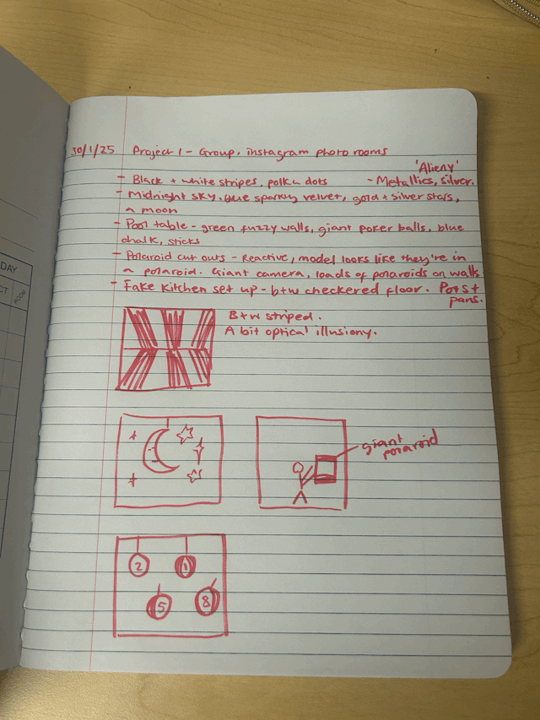 30/1/25 Project 1 - Group, instagram photo rooms
- Black + white stripes, polka dots
'Alieny'
- Metallics, silver.
- Midnight sky, blue sparkly velvet, gold + silver stars,
a moon
- Pool table - green fuzzy walls, giant poker balls, blue
chalk, sticks
- Polaroid cut outs - Reactive, model looks like they're in
a polaroid. Giant camera, loads of polaroids on walls
- Fake kitchen set up - b+w checkered floor. Pots +
pans.
B+w striped.
A bit optical illusiony.
giant
polaroid
2
1
5
8
DAY